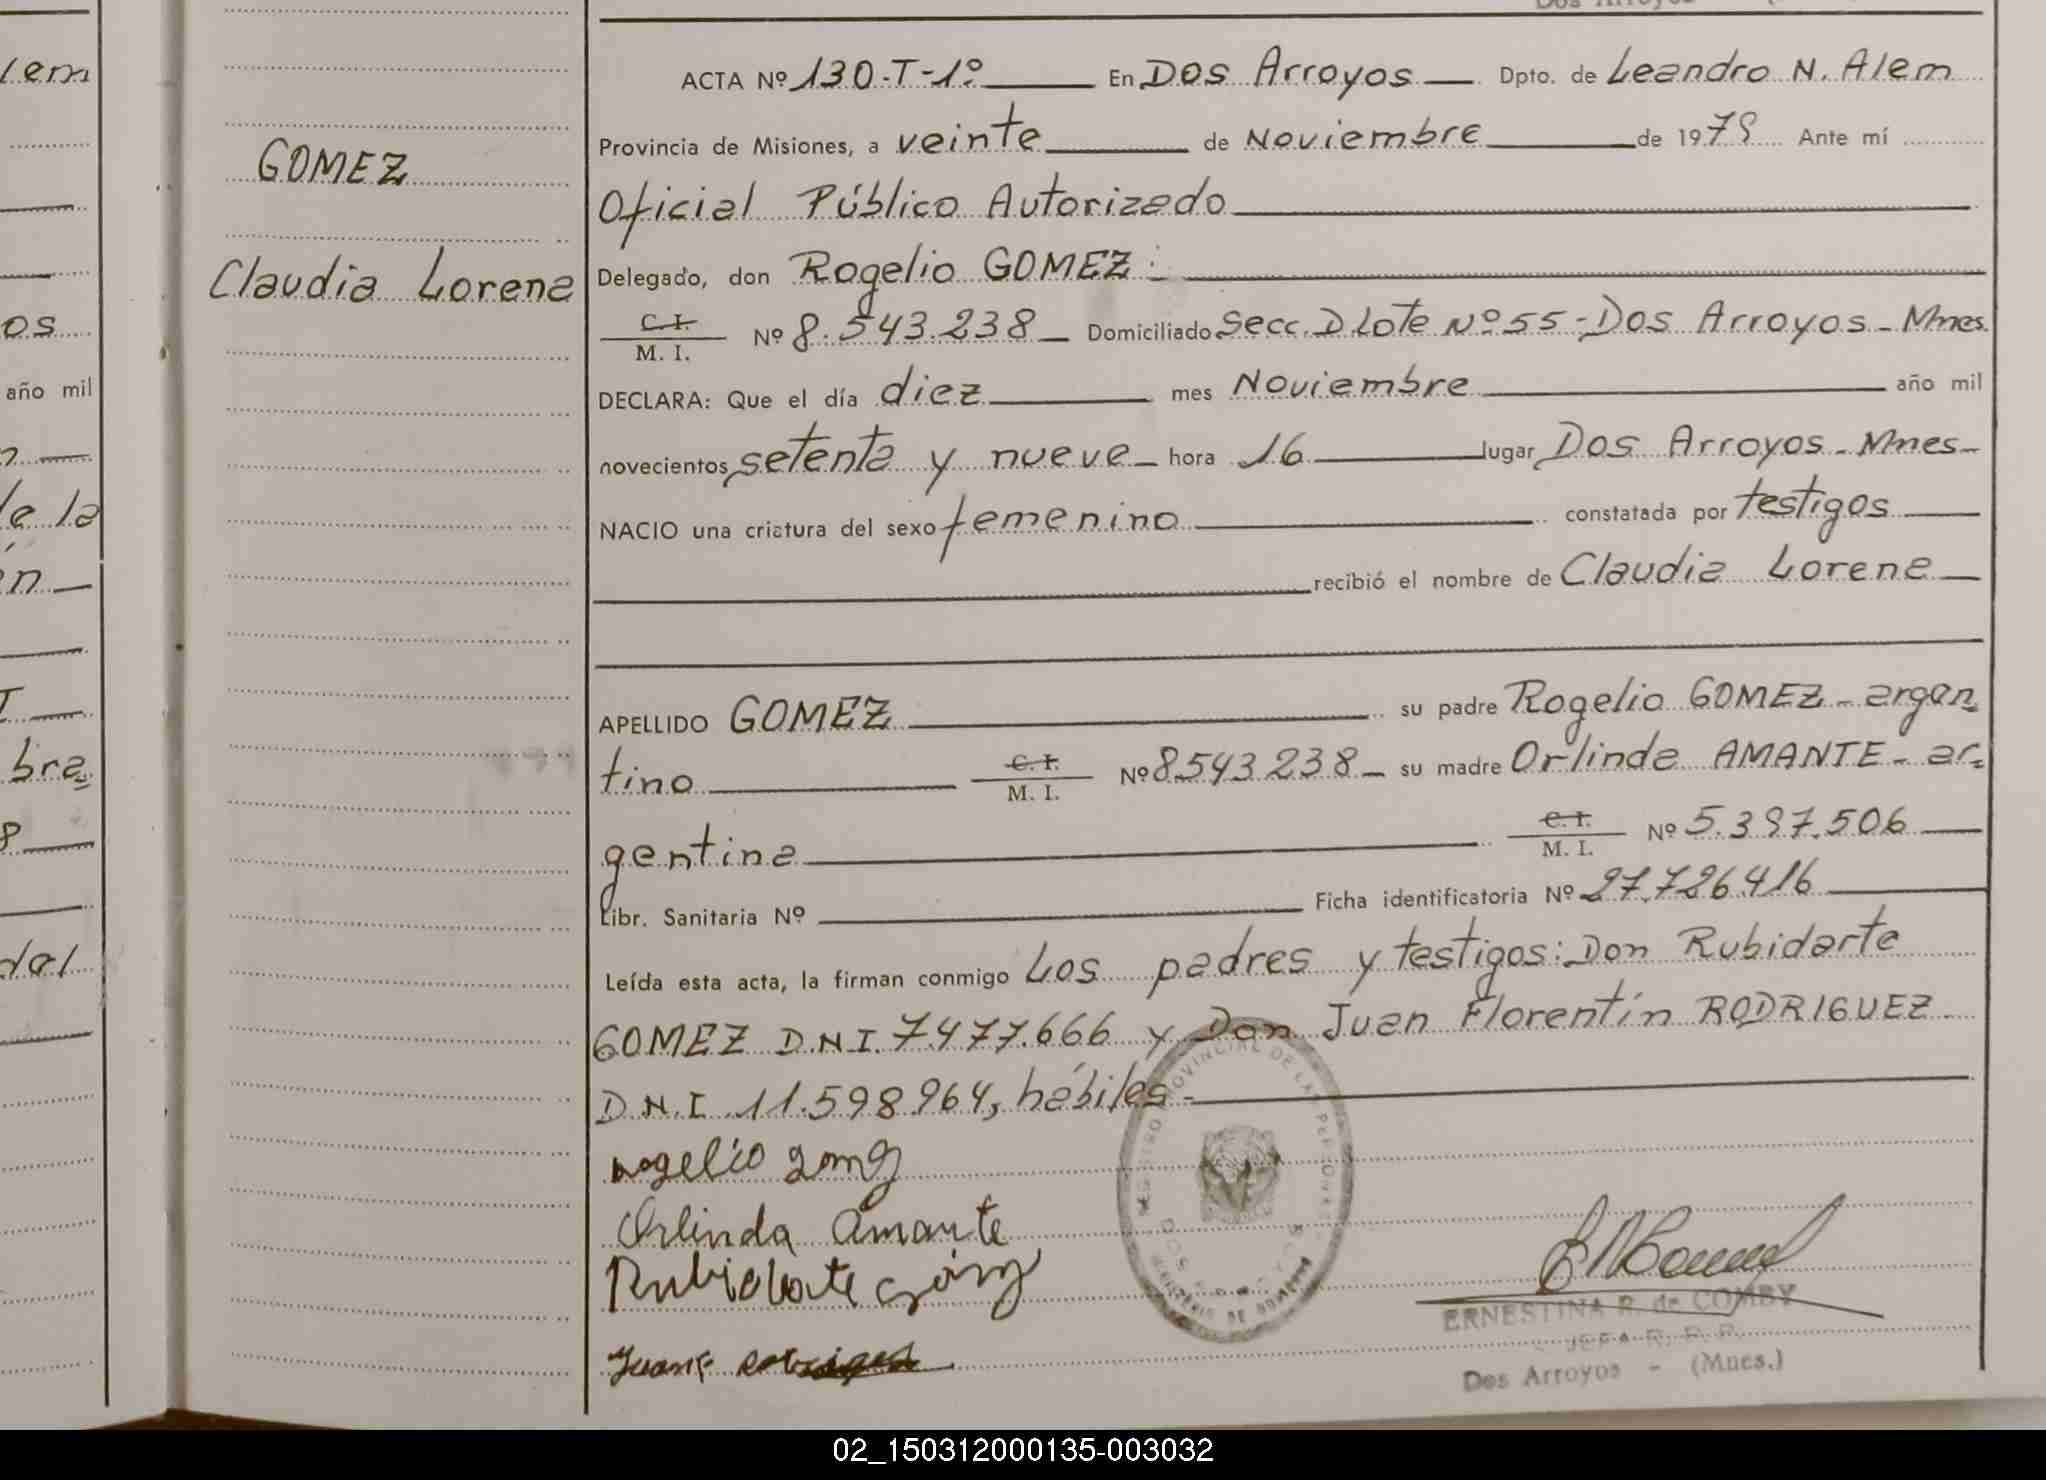 Dos Arroyos
lem
ACTA Nº 130-T-1º En Dos Arroyos Dpto. de Leandro N. Alem
GOMEZ
Provincia de Misiones, a veinte de Noviembre de 1979 Ante mí
Oficial Público Autorizado
Claudia Lorena
Delegado, don Rogelio GOMEZ:
os
C. I.
M. I.
Nº 8.543.238 Domiciliado Secc. D Lote Nº 55-Dos Arroyos-Mnes.
año mil
DECLARA: Que el día diez mes Noviembre año mil
novecientos setenta y nueve hora 16 lugar Dos Arroyos-Mnes-
de la
NACIO una criatura del sexo femenino constatada por testigos
recibió el nombre de Claudia Lorena
APELLIDO GOMEZ su padre Rogelio GOMEZ-argen
bra
tino C. I.
M. I.
Nº 8.543.238 su madre Orlinda AMANTE-ar-
gentina C. I.
M. I.
Nº 5.397.506
Libr. Sanitaria Nº Ficha identificatoria Nº 27.726.416
Leída esta acta, la firman conmigo Los padres y testigos: Don Rubidarte
GOMEZ D.N.I. 7.477.666 y Don Juan Florentín RODRIGUEZ
D.N.I. 11.598.964, hábiles-
Rogelio Gomez
Orlinda Amante
Rubidarte Gómez
Juan F
REGISTRO PROVINCIAL DE LAS PERSONAS
DOS ARROYOS
ERNESTINA R. de COMBY
JEFA R. P. P.
Dos Arroyos - (Mnes.)
02_150312000135-003032